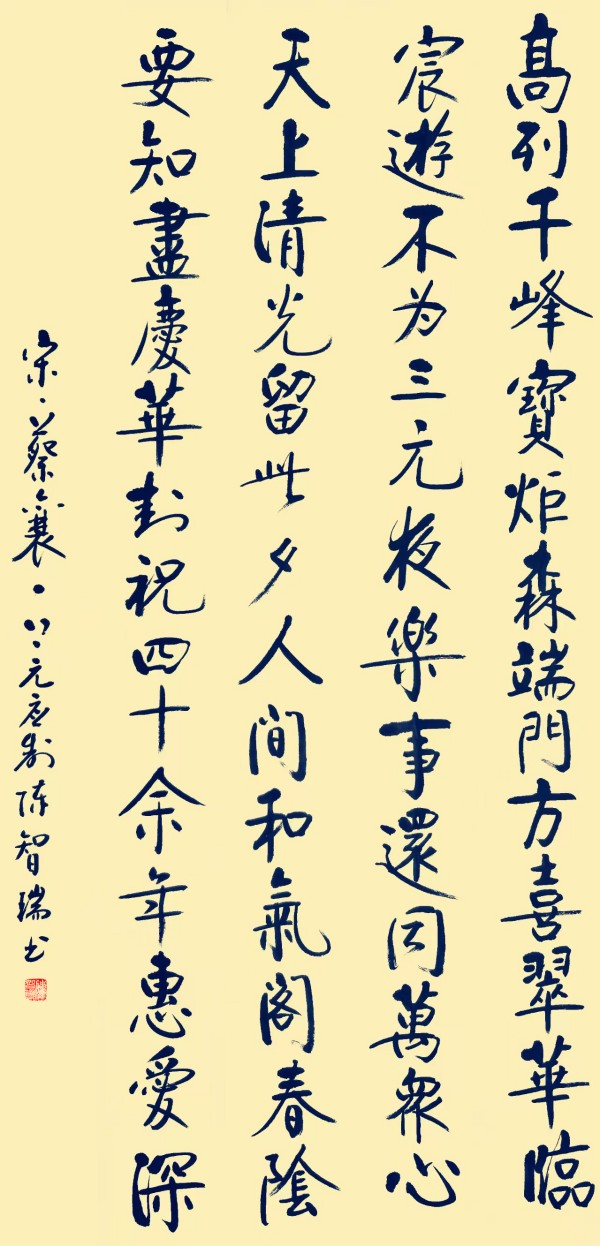 高列千峰寶炬森端門方喜翠華臨
宸遊不为三元夜樂事還同萬衆心
天上清光留此夕人間和氣阁春陰
要知盡慶華封祝四十余年惠愛深
宋·蔡襄·上元应制陈智瑞书